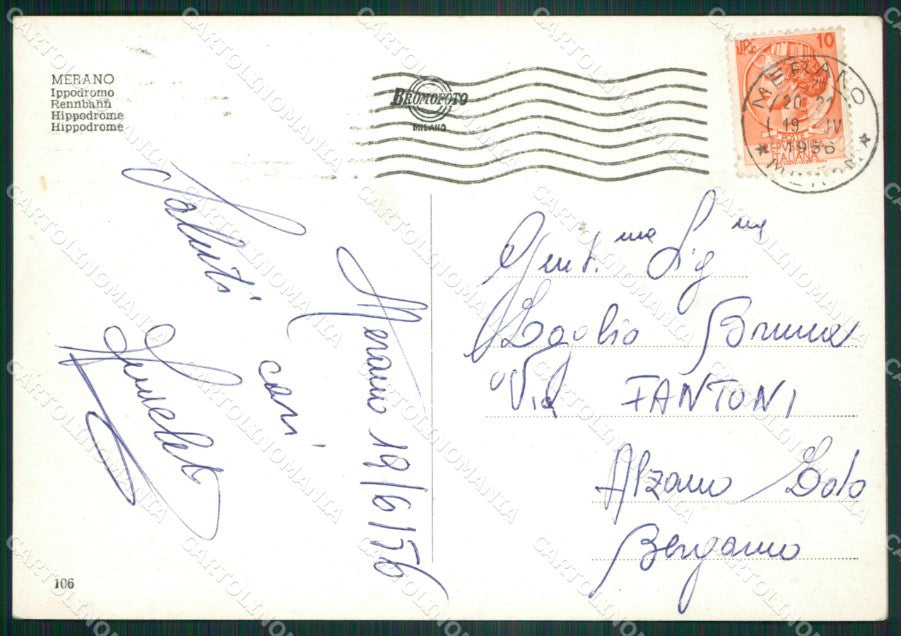 MERANO
Ippodromo
Rennbahn
Hippodrome
Hippodrome
BROMOFOTO
MILANO
LIRE 10
MERANO
20 21
19 IV
1956
ITALIANA
Merano 19/6/56
Saluti
cari
Gent.ma Sig.na
Zoglio Bruna
Via FANTONI
Alzano
Bergamo
106
CARTOLINOMANIA